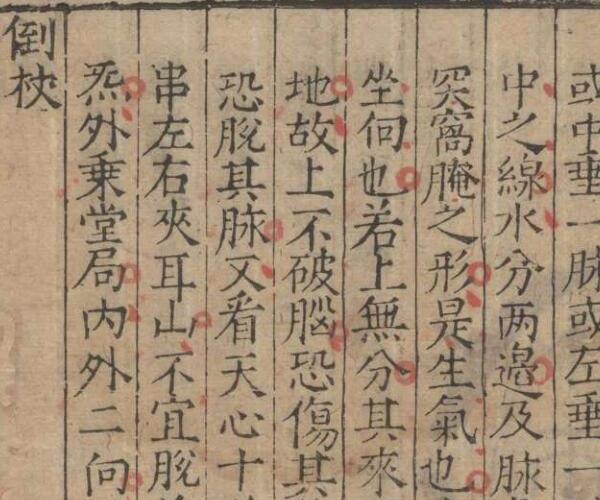 或中垂一脉或左垂一
中之線水分两邉及脉
突窩腌之形是生氣也
坐向也若上無分其來
地故上不破腦恐傷其
恐脫其脉又看天心十
串左右夾耳山不宜脫
炁外乘堂局内外二向
倒杖